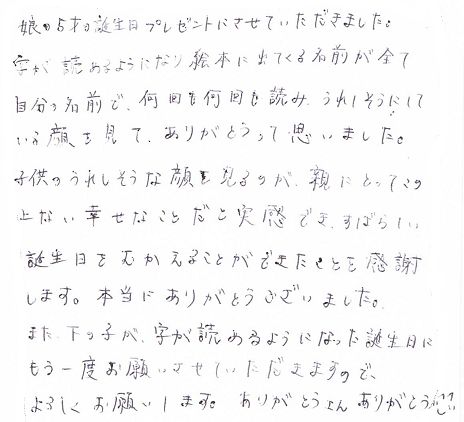 娘の5才の誕生日プレゼントにさせていただきました。
字が読めるようになり絵本に出てくる名前が全て
自分の名前で、何回も何回も読み、うれしそうにして
いる顔を見て、ありがとうって思いました。
子供のうれしそうな顔を見るのが、親にとってこの
上ない幸せなことだと実感でき、すばらしい
誕生日をむかえることができたことを感謝
します。本当にありがとうございました。
また、下の子が、字が読めるようになった誕生日に
もう一度お願いさせていただきますので、
よろしくお願いします。ありがとうさん ありがとう